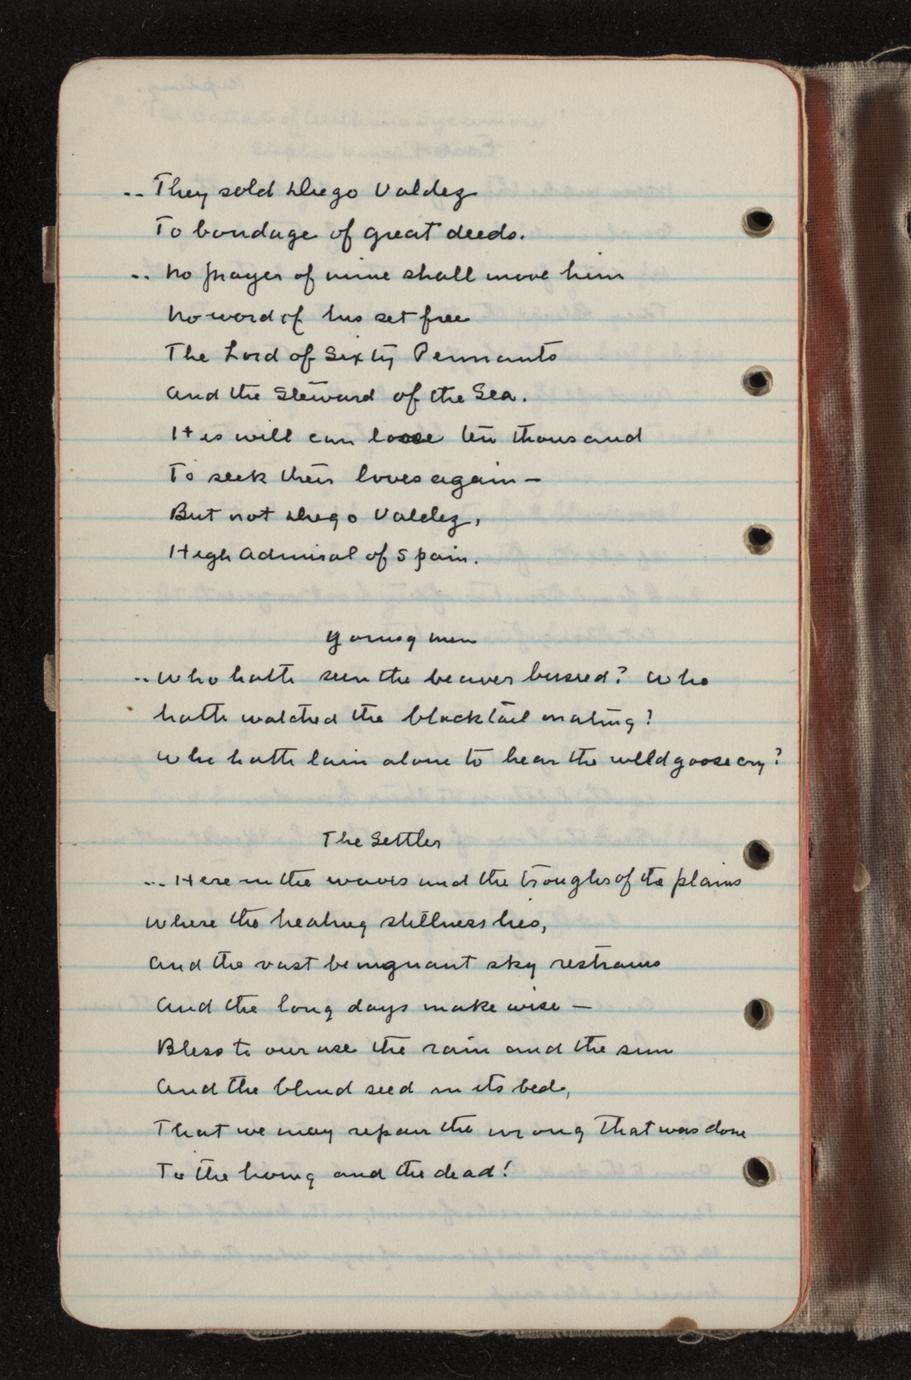 .. They sold Diego Valdez
To bondage of great deeds.
.. No prayer of mine shall move him
No word of his set free
The Lord of Sixty Pennants
And the Steward of the Sea.
His will can loose ten thousand
To seek their loves again —
But not Diego Valdez,
High Admiral of Spain.
Young men
.. Who hath seen the beaver busied? Who
hath watched the blacktail mating?
Who hath lain alone to hear the wild goose cry?
The Settler
... Here in the waves and the troughs of the plains
Where the healing stillness lies,
And the vast benignant sky restrains
And the long days make wise —
Bless to our use the rain and the sun
And the blind seed in its bed,
That we may repair the wrong that was done
To the living and the dead!